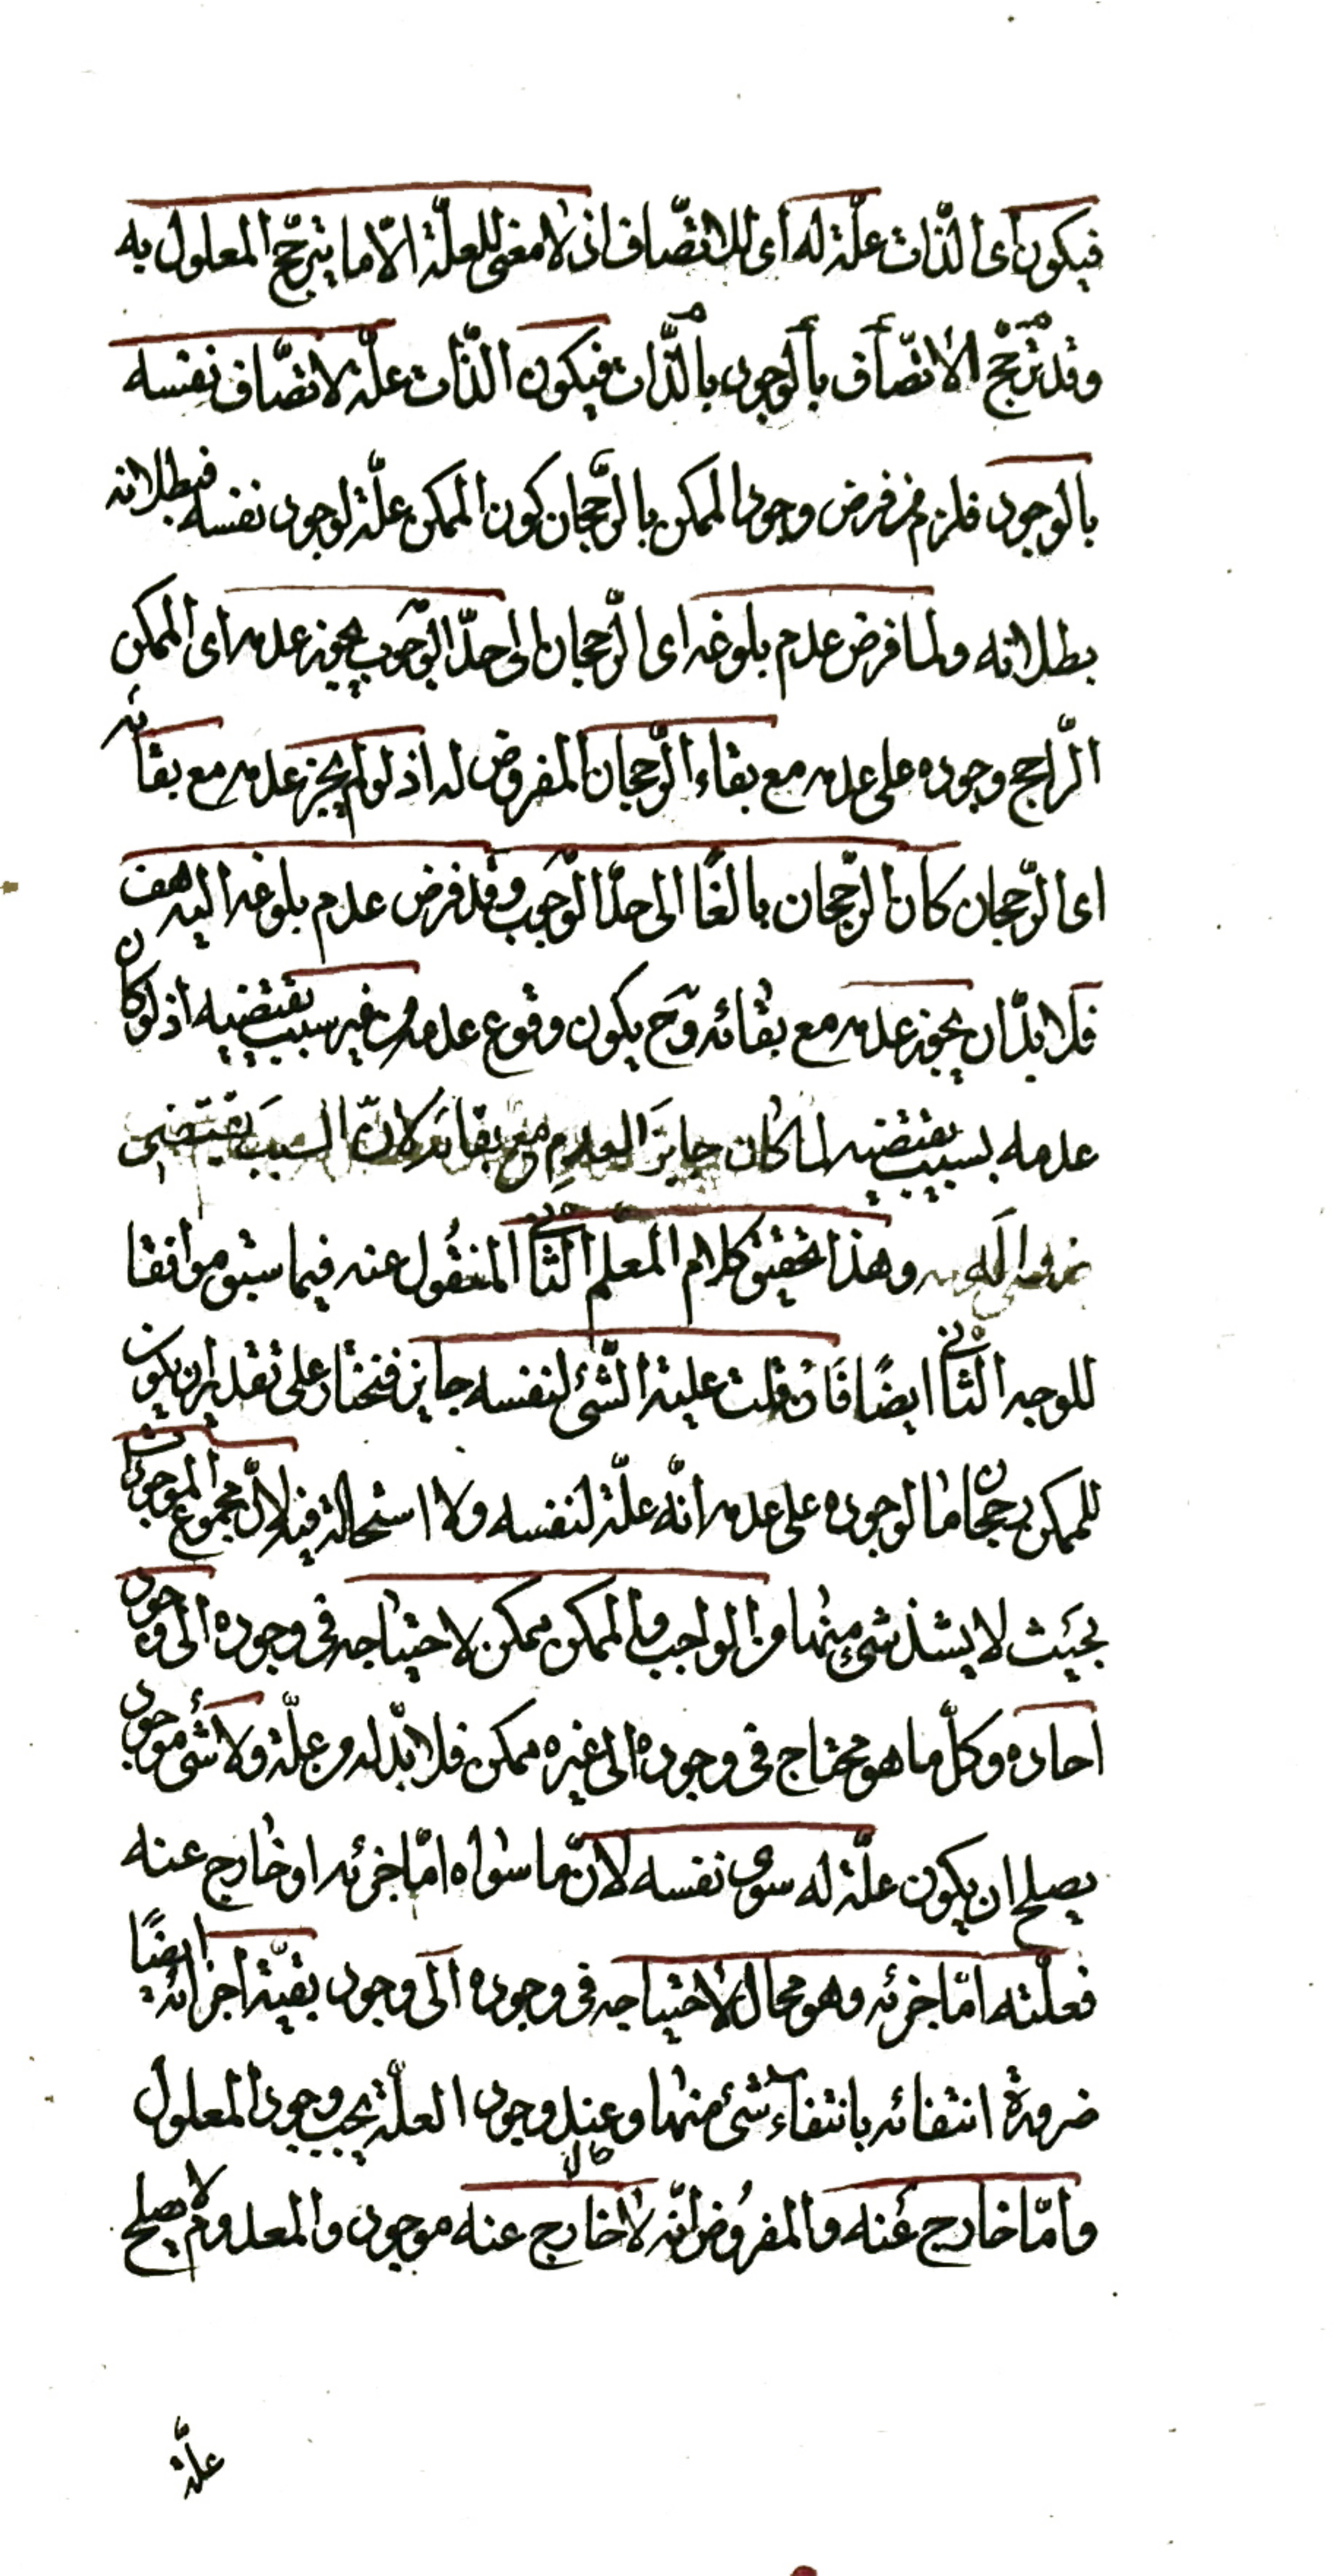 فيكون اى الذّات علّة له اى للاتّصاف اذ لا معنى للعلّة الّا ما يترجّح المعلول به
وقد ترجّح الاتّصاف بالوجود بالذّات فيكون الذّات علّة لاتصّاف نفسه
بالوجود فلزم من فرض وجود الممكن بالرّجحان كون الممكن علّة لوجود نفسه فبطلانه
بطلانه ولما فرض عدم بلوغه اى الرّجحان الى حدّ الوجوب يجوز عدمه اى الممكن
الرّاجح وجوده على عدمه مع بقاء الرّجحان المفروض له اذ لو لم يجز عدمه مع بقائه
اى الرّجحان كان الرّجحان بالغًا الى حدّ الوجوب وقد فرض عدم بلوغه اليه هف
فلا بدّ ان يجوز عدمه مع بقائه وح يكون وقوع عدمه من غير سبب يقتضيه اذ لو كان
عدمه بسبب يقتضيه لما كان جايز العدم مع بقائه لانّ السبب يقتضى
وهذا تحقيق كلام المعلّم الثانى المنقول عنه فيما سبق موافقا
للوجه الثانى ايضًا فان قلت علية الشّئ لنفسه جايز فنختار على تقدير ان يكون
للممكن رجحان ما لوجوده على عدمه انّه علّة لنفسه ولا استحالة فيه لانّ مجموع الموجودات
بحيث لا يشذ شئ منها من الواجب والممكن ممكن لاحتياجه فى وجوده الى وجود
احاده وكلّ ما هو محتاج فى وجوده الى غيره ممكن فلا بدّ له من علّة ولا شئ موجود
يصلح ان يكون علّة له سوى نفسه لانّ ما سواه امّا جزئه او خارج عنه
فعلّته امّا جزئه وهو محال لاحتياجه فى وجوده الى وجود بقيّة اجزائه ايضًا
ضرورة انتفائه بانتفاء شئ منها وعند وجود العلّة يجب وجود المعلول
وامّا خارج عنه والمفروض انّه لا خارج عنه موجود والمعدوم لا يصلح
علّة